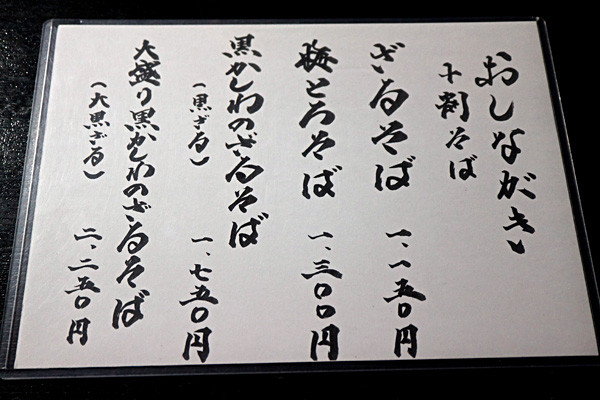 おしながき
十割そば
ざるそば 一、一五〇円
梅とろそば 一、三〇〇円
黒かしわのざるそば
(黒ざる) 一、七五〇円
大盛り黒かしわのざるそば
(大黒ざる) 二、二五〇円